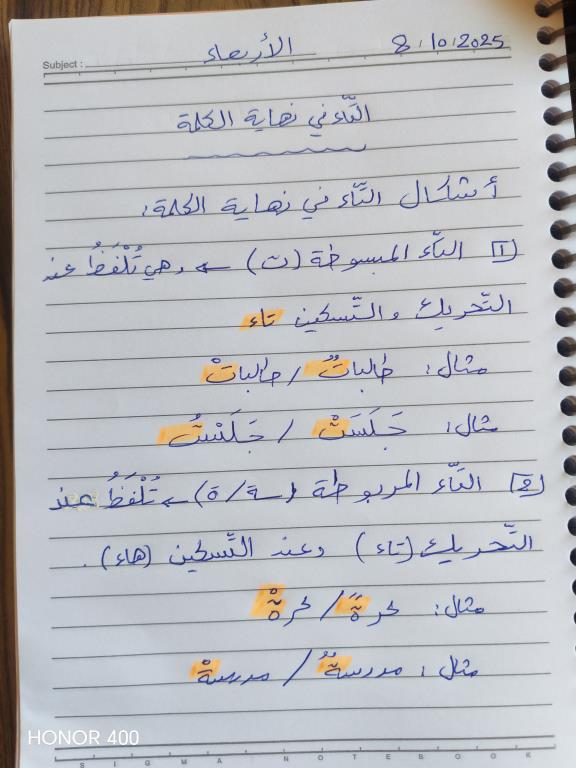 Subject : الأربعاء 8/10/2025
التّاء في نهاية الكلمة
أشكال التّاء في نهاية الكلمة:
1 التّاء المبسوطة (ت) ← وهي تُلْفَظُ عند
التّحريك والتّسكين تاء
مثال: طالباتٌ / طالباتْ
مثال: جَلَسَتْ / جَلَسْتُ
2 التّاء المربوطة (ـة/ة) ← تُلْفَظُ عند
التّحريك (تاء) وعند التّسكين (هاء).
مثال: حرةً / حرةْ
مثال: مدرسةٌ / مدرسةْ
HONOR 400
SIGMA NOTEBOOK